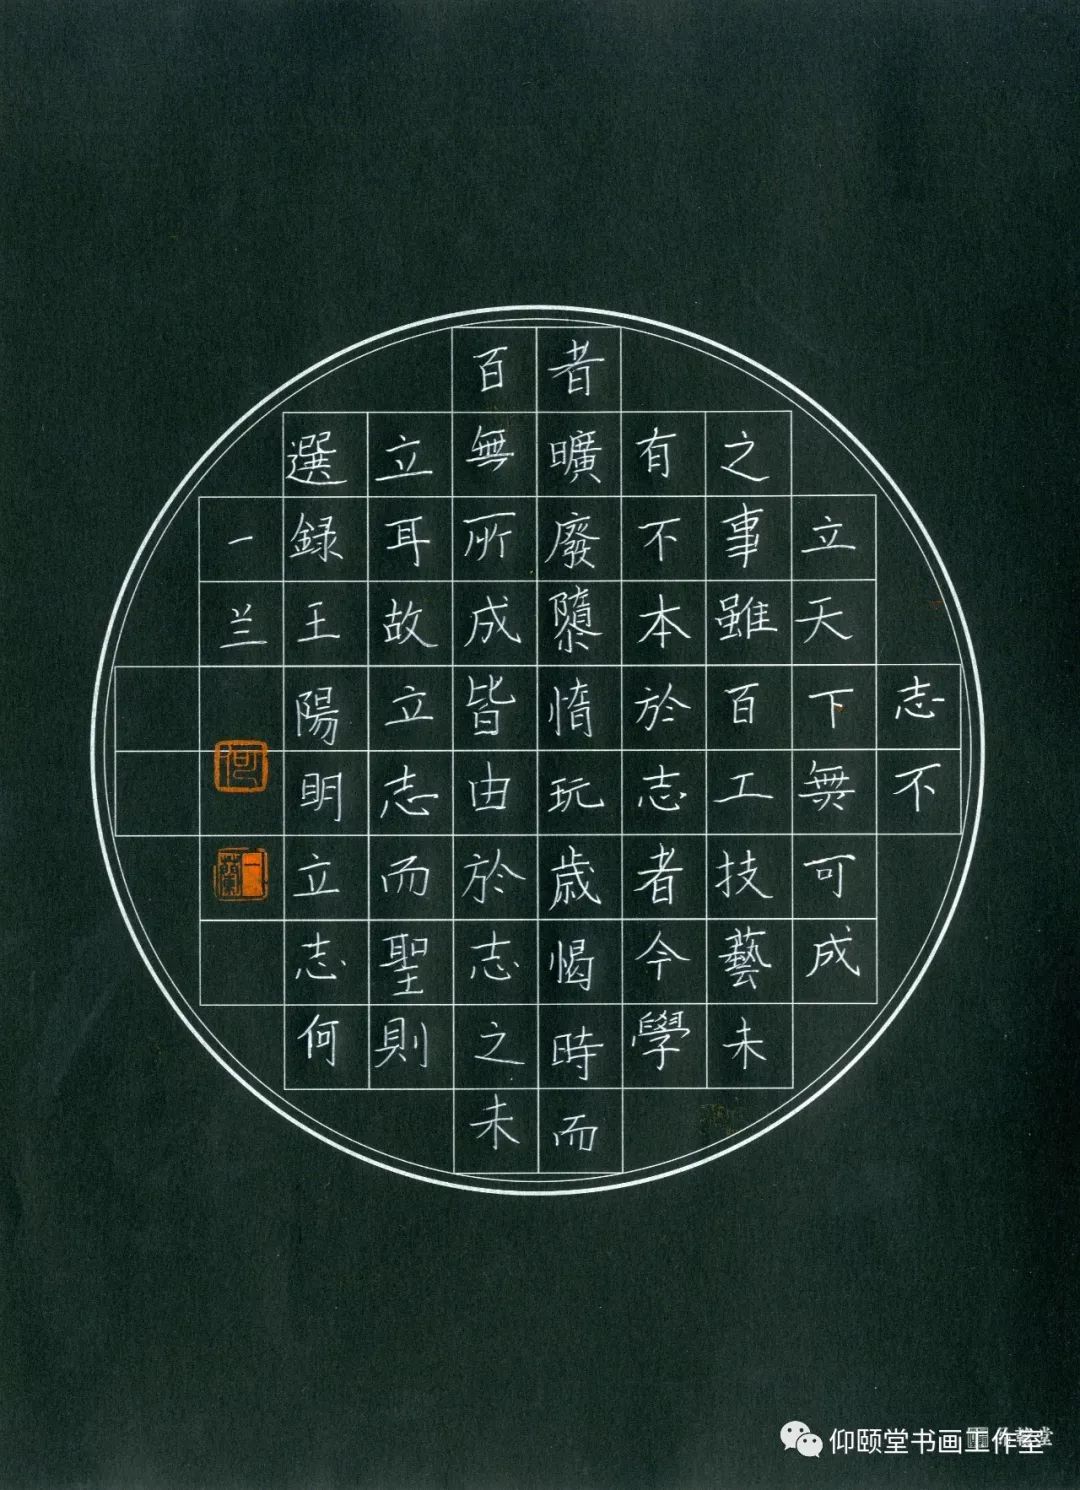 志不
立天下無可成
之事雖百工技藝未
有不本於志者今學
者曠廢隳惰玩歲愒時而
百無所成皆由於志之未
立耳故立志而聖則
選録王陽明立志何
一兰
何
一蘭
仰颐堂书画工作室